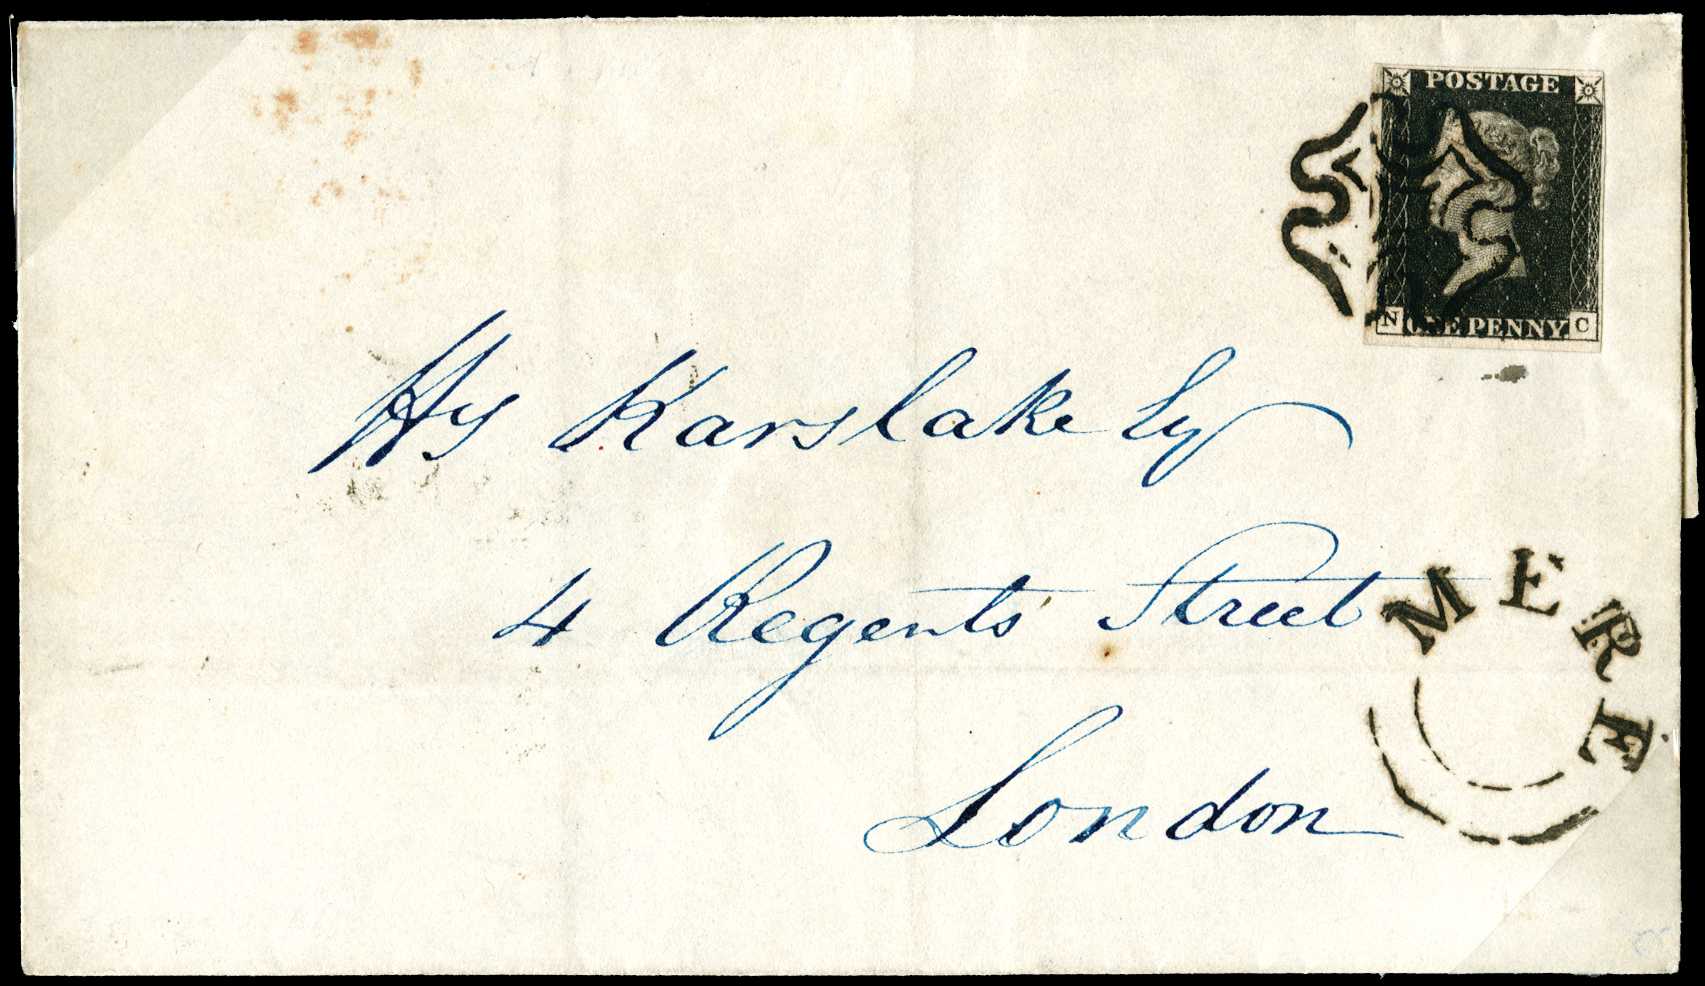 POSTAGE
N ONE PENNY. C
Hy Karslake Esq
4 Regents Street
London
MERE